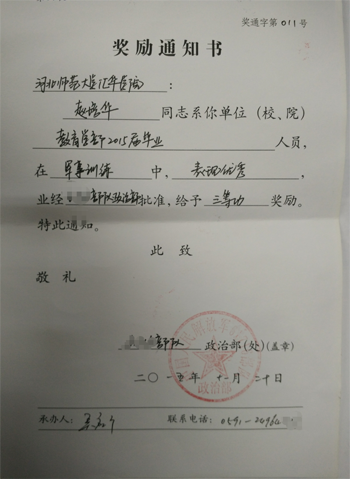 奖通字第011号
奖励通知书
河北师范大学汇华学院：
赵增华 同志系你单位（校、院）
教育学部2015届毕业 人员，
在 军事训练 中，表现优秀，
业经 部队政治部批准，给予 三等功 奖励。
特此通知。
此 致
敬 礼
部队 政治部(处)(盖章)
政治部
二〇一五年 十一月 二十日
承办人：
联系电话：0591-24964